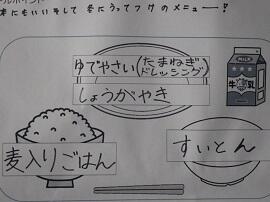 体にもいいそして 冬にうってつけのメニュー!
ゆでやさい(たまねぎドレッシング)
しょうがやき
MILK
牛乳
麦入りごはん
すいとん